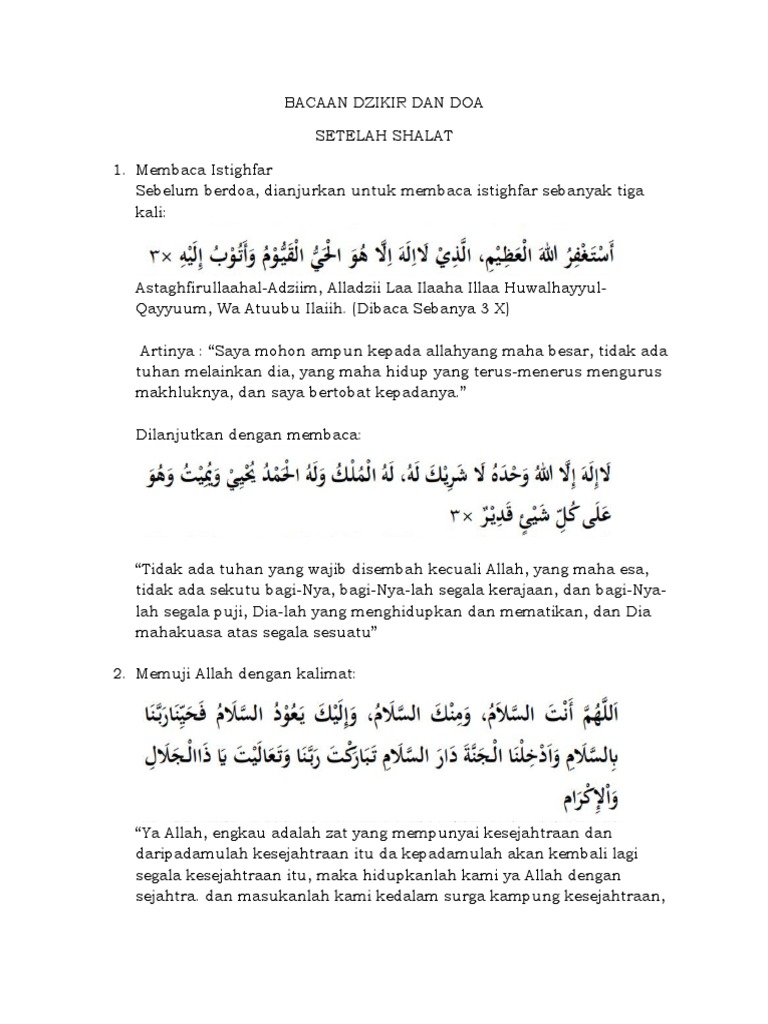 BACAAN DZIKIR DAN DOA
SETELAH SHALAT
1. Membaca Istighfar
Sebelum berdoa, dianjurkan untuk membaca istighfar sebanyak tiga
kali:
أَسْتَغْفِرُ اللهَ الْعَظِيْمِ، الَّذِيْ لَااِلَهَ اِلَّا هُوَ الْحَيُّ الْقَيُّوْمُ وَأَتُوْبُ إِلَيْهِ ×٣
Astaghfirullaahal-Adziim, Alladzii Laa Ilaaha Illaa Huwalhayyul-
Qayyuum, Wa Atuubu Ilaiih. (Dibaca Sebanya 3 X)
Artinya : “Saya mohon ampun kepada allahyang maha besar, tidak ada
tuhan melainkan dia, yang maha hidup yang terus-menerus mengurus
makhluknya, dan saya bertobat kepadanya.”
Dilanjutkan dengan membaca:
لَاإِلَهَ إِلَّا اللهُ وَحْدَهُ لَا شَرِيْكَ لَهُ، لَهُ الْمُلْكُ وَلَهُ الْحَمْدُ يُحْيِيْ وَيُمِيْتُ وَهُوَ
عَلَى كُلِّ شَيْئٍ قَدِيْرٌ ×٣
“Tidak ada tuhan yang wajib disembah kecuali Allah, yang maha esa,
tidak ada sekutu bagi-Nya, bagi-Nya-lah segala kerajaan, dan bagi-Nya-
lah segala puji, Dia-lah yang menghidupkan dan mematikan, dan Dia
mahakuasa atas segala sesuatu”
2. Memuji Allah dengan kalimat:
اَللَّهُمَّ أَنْتَ السَّلاَمُ، وَمِنْكَ السَّلَامُ، وَإِلَيْكَ يَعُوْدُ السَّلَامُ فَحَيِّنَارَبَّنَا
بِالسَّلَامِ وَاَدْخِلْنَا الْجَنَّةَ دَارَ السَّلَامِ تَبَارَكْتَ رَبَّنَا وَتَعَالَيْتَ يَا ذَاالْجَلَالِ
وَاْلإِكْرَام
“Ya Allah, engkau adalah zat yang mempunyai kesejahtraan dan
daripadamulah kesejahtraan itu da kepadamulah akan kembali lagi
segala kesejahtraan itu, maka hidupkanlah kami ya Allah dengan
sejahtra. dan masukanlah kami kedalam surga kampung kesejahtraan,